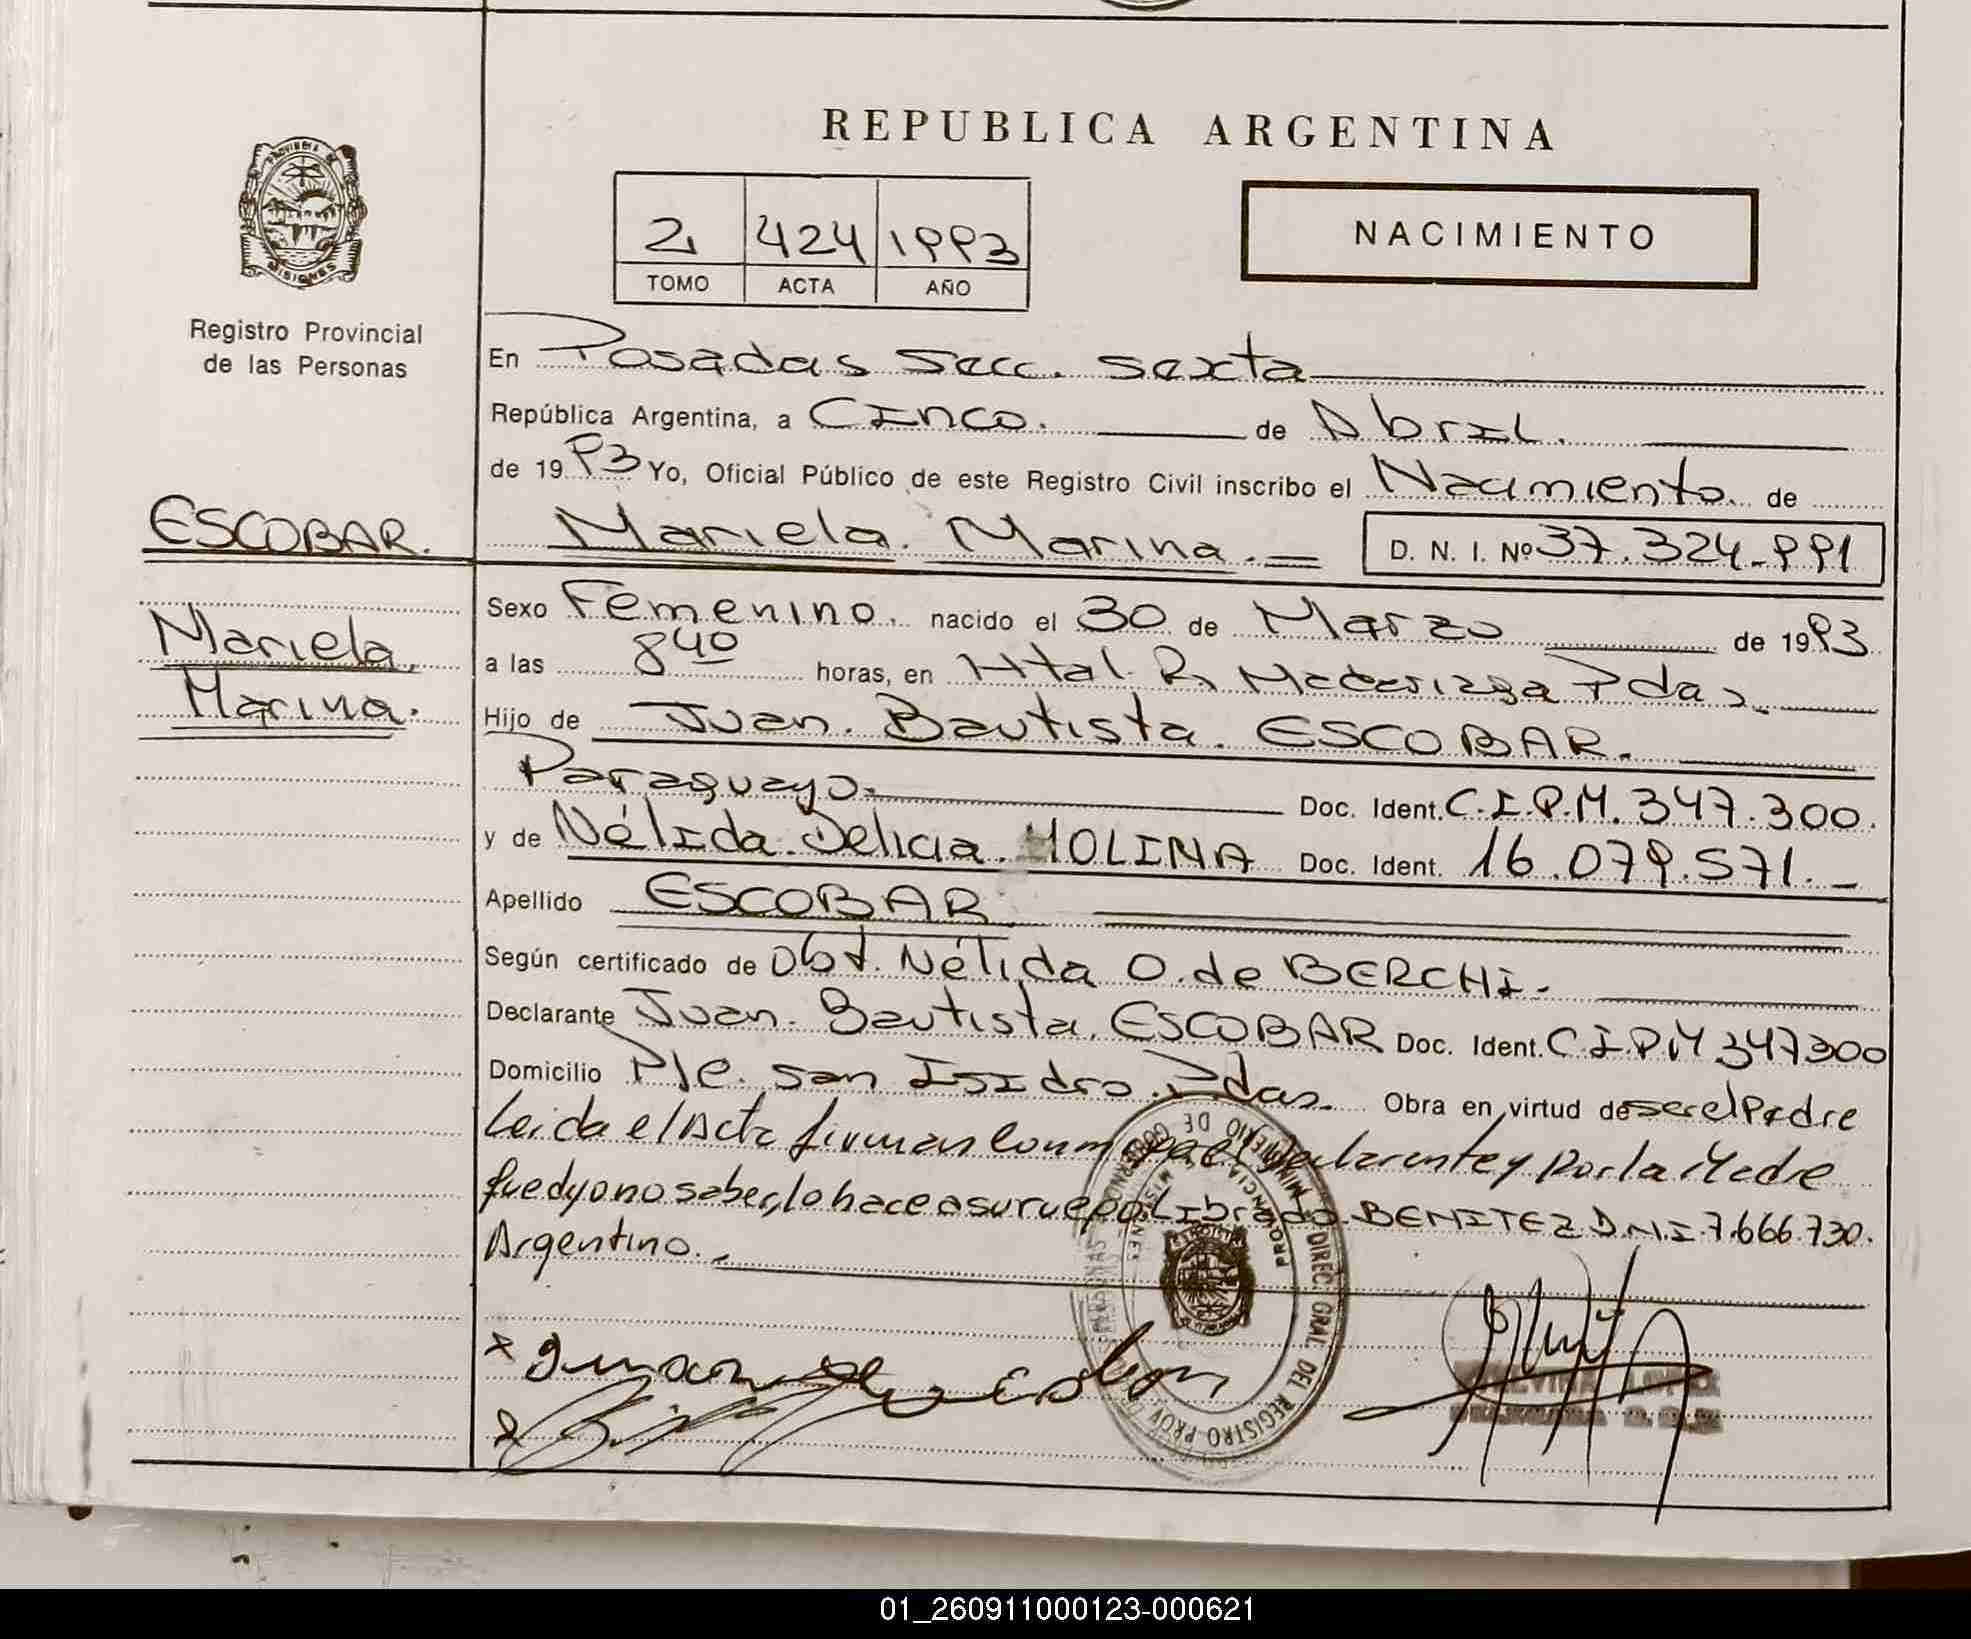 REPUBLICA ARGENTINA
PROVINCIA DE
MISIONES
Registro Provincial
de las Personas
2 424 1993
TOMO ACTA AÑO
NACIMIENTO
En Posadas Secc. Sexta
República Argentina, a Cinco. de Abril.
de 1993 Yo, Oficial Público de este Registro Civil inscribo el Nacimiento de
ESCOBAR. Mariela. Marina. D. N. I. Nº 37.324.991
Mariela
Marina.
Sexo Femenino. nacido el 30 de Marzo de 1993.
a las 8 40 horas, en Htal. R. Madariaga Pdas.
Hijo de Juan. Bautista. ESCOBAR.
Paraguayo. Doc. Ident. C.I.P.M. 347.300.
y de Nélida. Delicia. MOLINA Doc. Ident. 16.079.571.
Apellido ESCOBAR
Según certificado de Obst. Nélida O. de BERCHI.
Declarante Juan. Bautista. ESCOBAR Doc. Ident. C.I.P.M 347300
Domicilio Pje. San Isidro. Pdas. Obra en virtud de ser el Padre
Leida el Acta firman conmigo el declarante y por la Madre
que dijo no saber, lo hace a su ruego Librado BENITEZ D.N.I. 7.666.730.
Argentino.
MINISTERIO DE GOBIERNO
DIREC. GRAL. DEL REGISTRO PROV.
PROVINCIA MISIONES
01_260911000123-000621